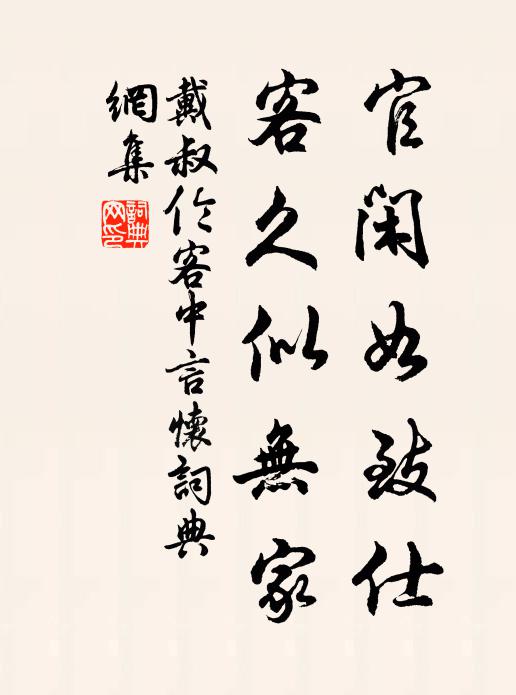 官閑如致仕
客久似無家
戴叔伦客中言懷詞典
網集
詞典
网印